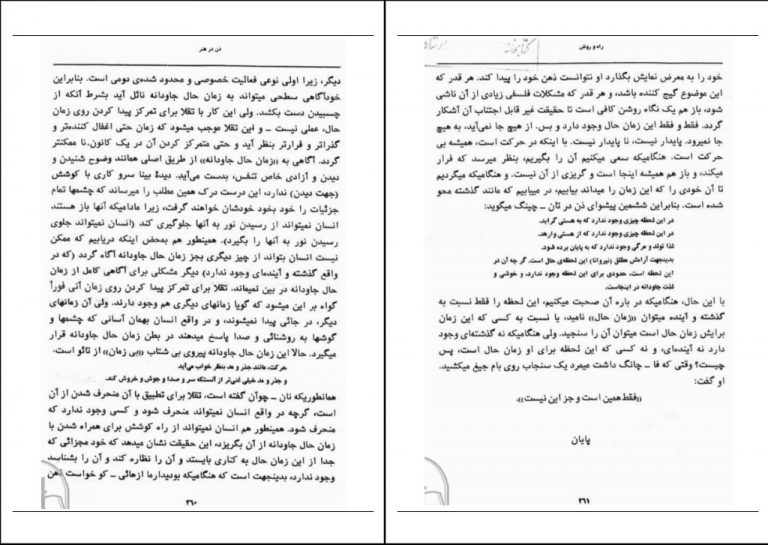 ذن در هنر
دیگر، زیرا اولی نوعی فعالیت خصوصی و محدود شده‌ی دومی است. بنابراین
خودآگاهی سطحی میتواند به زمان حال جاودانه نائل آید بشرط آنکه از
چسبیدن دست بکشد. ولی این کار با تقلا برای تمرکز پیدا کردن روی زمان
حال، عملی نیست ــ و این تقلا موجب میشود که زمان حتی اغفال کننده‌تر و
گذراتر و فرارتر بنظر آید و حتی متمرکز کردن آن در یک کانون، نا ممکنتر
گردد. آگاهی به «زمان حال جاودانه» از طریق اصلی همانند وضوح شنیدن و
دیدن و آزادی خاص تنفس، بدست می‌آید. دیدهٔ بینا سرو کاری با کوشش
(جهت دیدن) ندارد، این درست درک همین مطلب را میرساند که چشمها تمام
جزئیات را خود بخود خودشان خواهند گرفت، زیرا مادامیکه آنها باز هستند
انسان نمیتواند از رسیدن نور به آنها جلوگیری کند (انسان نمیتواند جلوی
رسیدن نور به آنها را بگیرد). همینطور هم بمحض اینکه دریابیم که ممکن
نیست انسان بتواند از چیز دیگری بجز زمان حال جاودانه آگاه گردد (که در
واقع گذشته و آینده‌ای وجود ندارد) دیگر مشکلی برای آگاهی کامل از زمان
حال جاودانه در بین نمیماند. تقلا برای تمرکز پیدا کردن روی زمان آنی فوراً
گواه بر این میشود که گویا زمانهای دیگری هم وجود دارند. ولی آن زمانهای
دیگر، در جائی پیدا نمیشوند، و در واقع انسان بهمان آسانی که چشمها و
گوشها به روشنائی و صدا پاسخ میدهند در بطن زمان حال جاودانه قرار
میگیرد. حالا این زمان حال جاودانه پیروی بی شتاب «بی زمان» از تائو است.
حرکت، مانند جذر و مد بنظر خواب می‌آید
و جذر و مد خیلی غنی‌تر از آنستکه سر و صدا و جوش و خروش کند.
همانطوریکه نان ــ چوآن گفته است، تقلا برای تطبیق با آن منحرف شدن از آن
است، گرچه در واقع انسان نمیتواند منحرف شود و کسی وجود ندارد که
منحرف شود. همینطور هم انسان نمیتواند از راه کوشش برای همراه شدن با
زمان حال جاودانه از آن بگریزد، این حقیقت نشان میدهد که خود مجزائی که
جدا از این زمان حال به کناری بایستد و آن را نظاره کند و آن را بشناسد
وجود ندارد، بدینجهت است که هنگامیکه بودیدارما ازهائی ــ کو خواست ذهن
۳۶۰
راه و روش
کتابخانه
خود را به معرض نمایش بگذارد او نتوانست ذهن خود را پیدا کند. هر قدر که
این موضوع گیج کننده باشد، و هر قدر که مشکلات فلسفی زیادی از آن ناشی
شود، باز هم یک نگاه روشن کافی است تا حقیقت غیر قابل اجتناب آن آشکار
گردد. فقط و فقط این زمان حال وجود دارد و بس. از هیچ جا نمی‌آید، به هیچ
جا نمیرود. پایدار نیست، نا پایدار نیست. با اینکه در حرکت است، همیشه بی
حرکت است. هنگامیکه سعی میکنیم آن را بگیریم، بنظر میرسد که فرار
میکند، و باز هم همیشه اینجا است و گریزی از آن نیست. و هنگامیکه میگردیم
تا آن خودی را که این زمان را میداند بیابیم، در مییابیم که مانند گذشته محو
شده است. بنابراین ششمین پیشوای ذن در تان ــ چینگ میگوید:
در این لحظه چیزی وجود ندارد که به هستی گراید.
در این لحظه چیزی وجود ندارد که از هستی وارهد.
لذا تولد و مرگی وجود ندارد که به پایان برده شود.
بدینجهت آرامش مطلق (نیروانا) این لحظه‌ی حال است. گر چه آن در
این لحظه است، حدودی برای این لحظه وجود ندارد، و خوشی و
لذت جاودانه در اینجاست.
با این حال، هنگامیکه در باره آن صحبت میکنیم، این لحظه را فقط نسبت به
گذشته و آینده میتوان «زمان حال» نامید، یا نسبت به کسی که این زمان
برایش زمان حال است میتوان آن را سنجید. ولی هنگامیکه نه گذشته‌ای وجود
دارد نه آینده‌ای، و نه کسی که این لحظه برای او زمان حال است، پس
چیست؟ وقتی که فا ــ چانگ داشت میمرد یک سنجاب روی بام جیغ میکشید.
او گفت:
«فقط همین است و جز این نیست».
پایان
۳۶۱